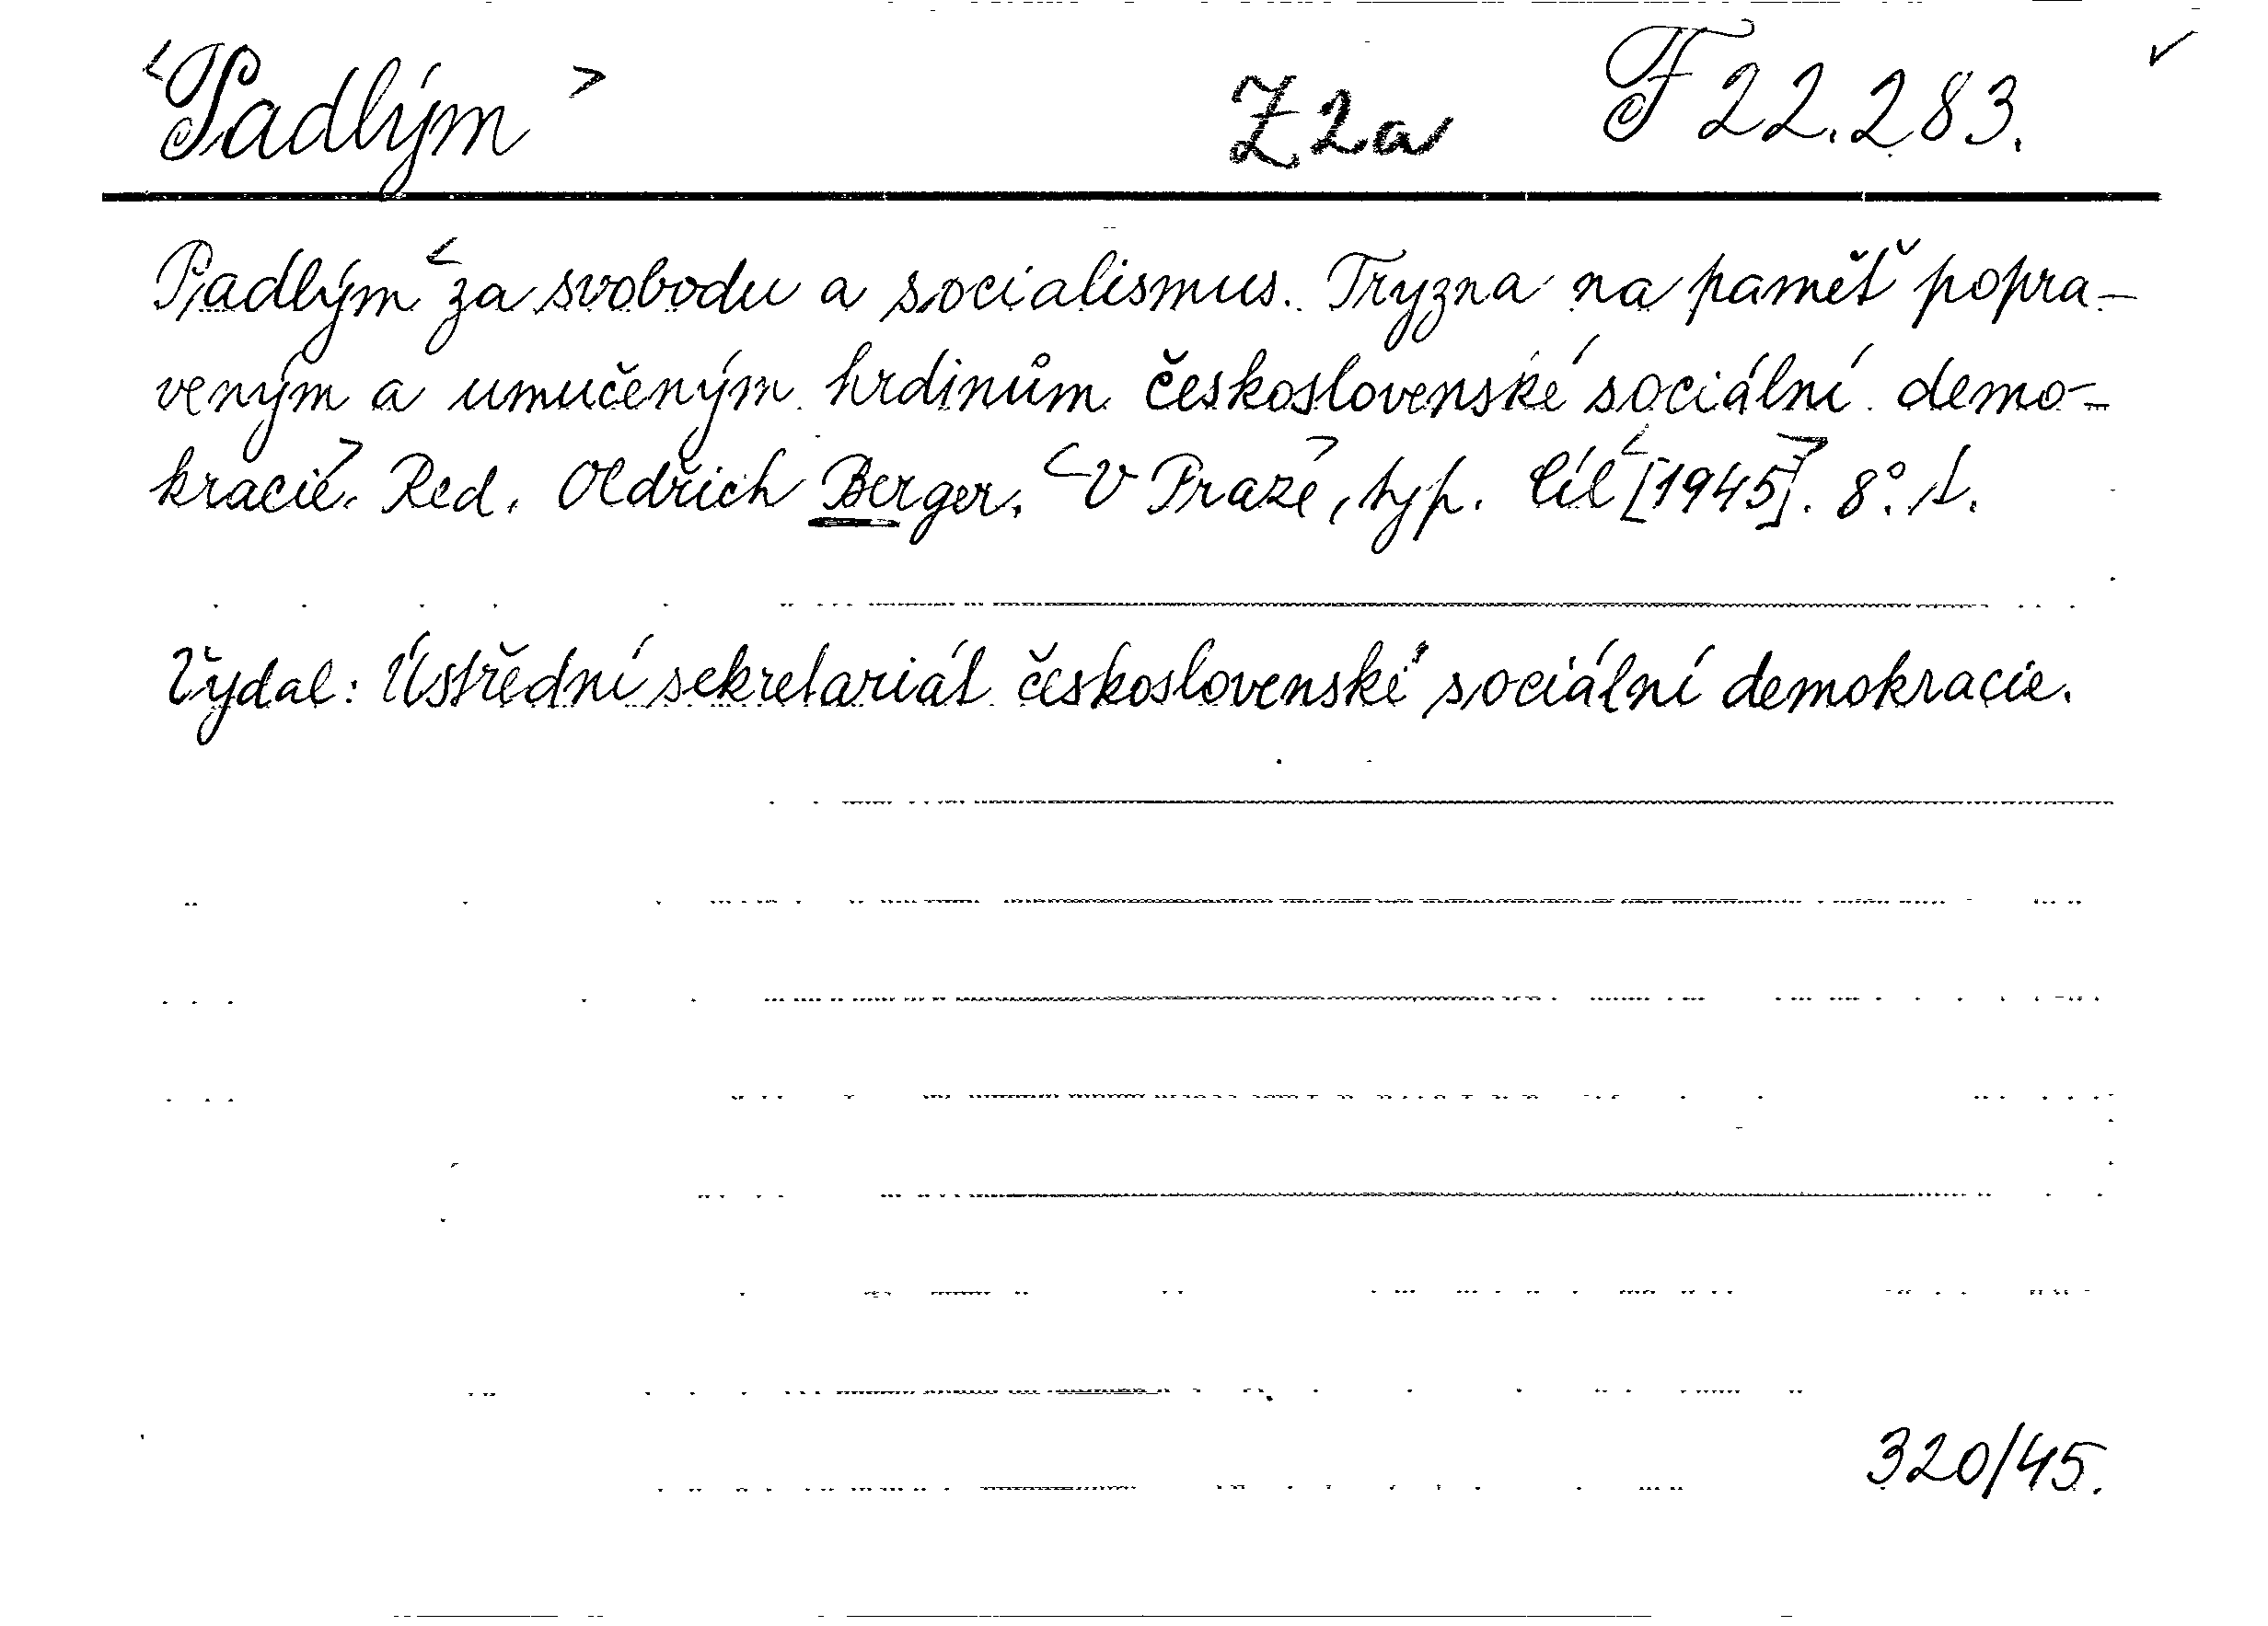 <Padlým> Z2a F 22.283. ✓
Padlým <za svobodu a socialismus. Tryzna na paměť popra-
veným a umučeným hrdinům československé sociální demo-
kracie>. Red. Oldřich Berger. <V Praze>, typ. Cíl <[1945]>. 8°. s.
Vydal: Ústřední sekretariát československé sociální demokracie.
320/45.